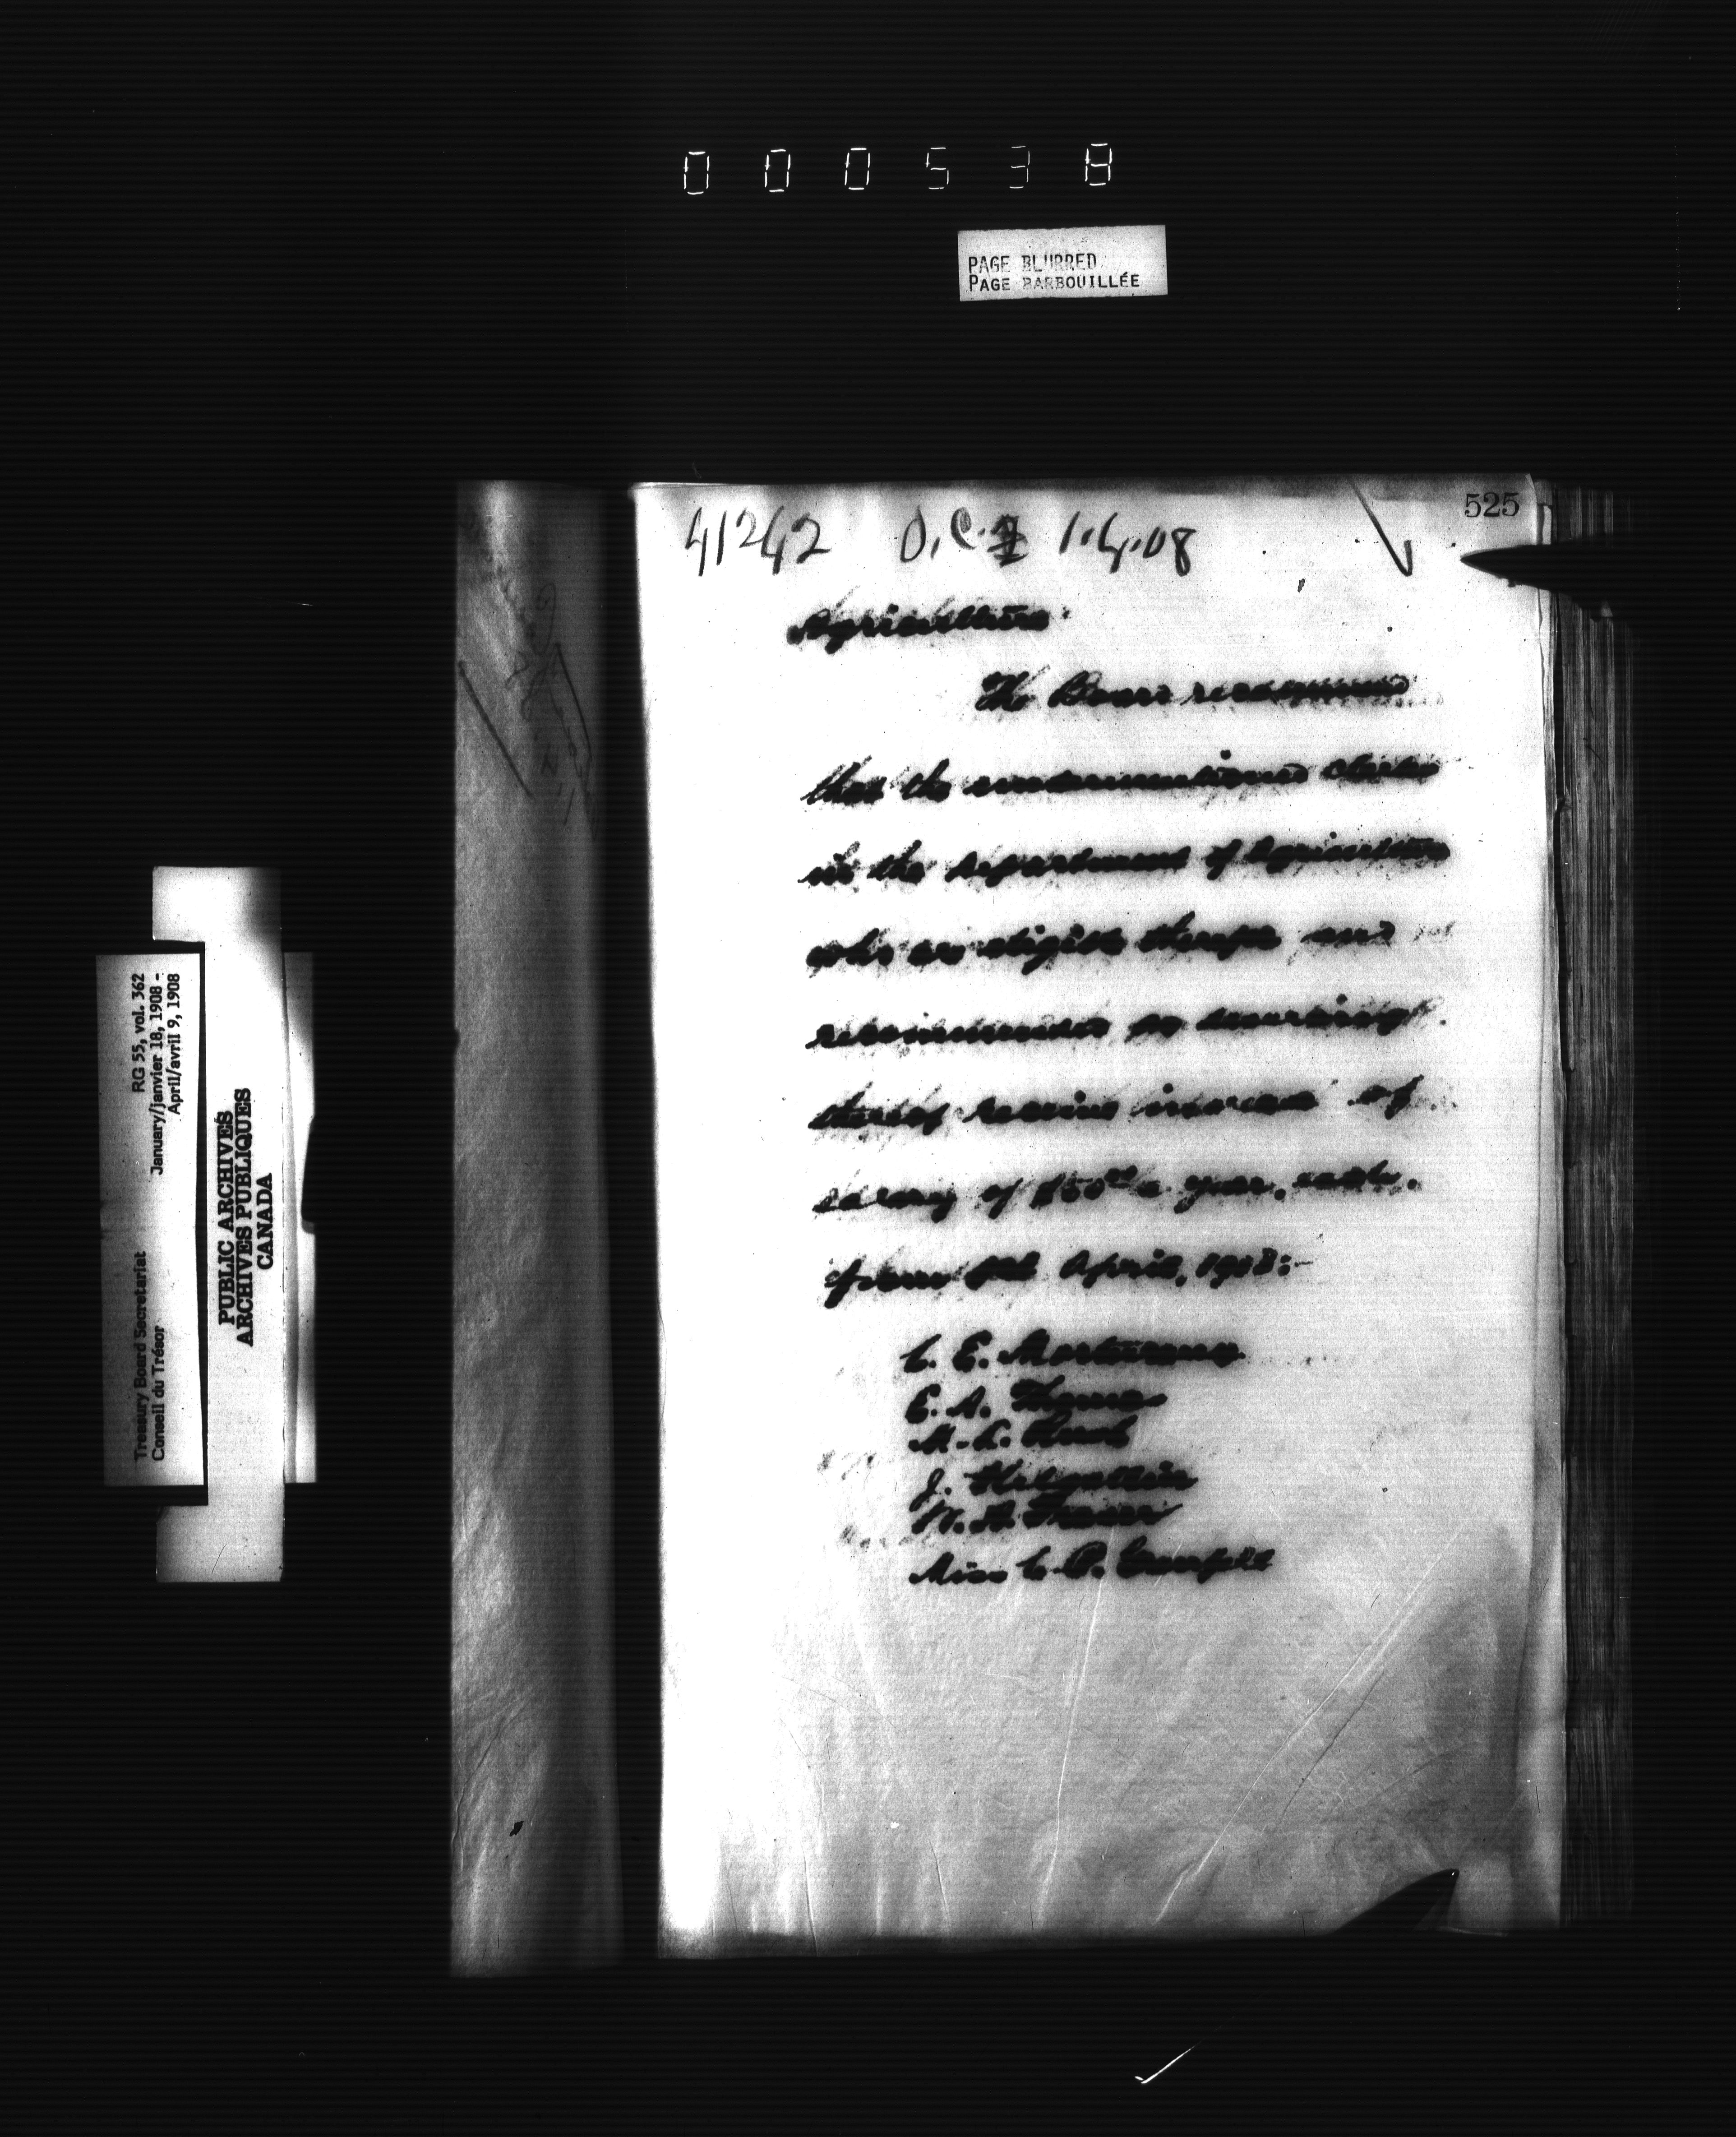 000538
PAGE BLURRED
PAGE BARBOUILLÉE
525
41242 O.C. 1.4.08
Agriculture
The Board recommend
that the undermentioned clerks
in the Department of Agriculture
who are eligible therefor and
recommended as deserving
thereof receive increase of
salary of $50 a year, each,
from 1st April, 1908:-
C. E.
E. A. Thomas
M. C.
J.
W. A. Fraser
Miss C. P.
Treasury Board Secretariat RG 55, vol. 362
Conseil du Trésor January/janvier 18, 1908 -
April/avril 9, 1908
PUBLIC ARCHIVES
ARCHIVES PUBLIQUES
CANADA